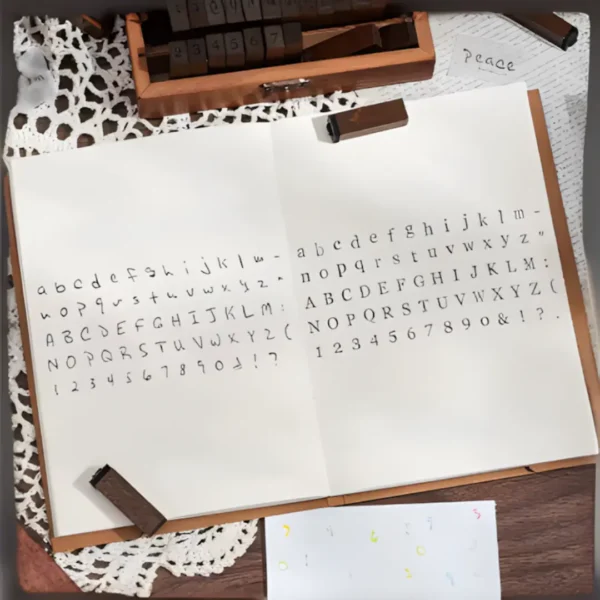 2 3 4 5 6 7
Peace
a b c d e f g h i j k l m -
n o p q r s t u v w x y z "
A B C D E F G H I J K L M :
N O P Q R S T U V W X Y Z (
1 2 3 4 5 6 7 8 9 0 & ! ?
a b c d e f g h i j k l m -
n o p q r s t u v w x y z "
A B C D E F G H I J K L M :
N O P Q R S T U V W X Y Z (
1 2 3 4 5 6 7 8 9 0 & ! ? .